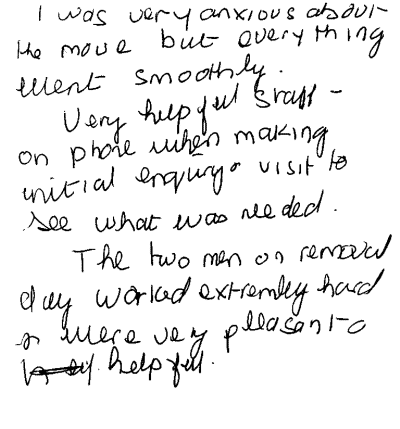 I was very anxious about
the move but everything
went smoothly.
Very helpful staff -
on phone when making
initial enquiry & visit to
see what was needed.
The two men on removal
day worked extremley hard
& were very pleasant &
helpful.